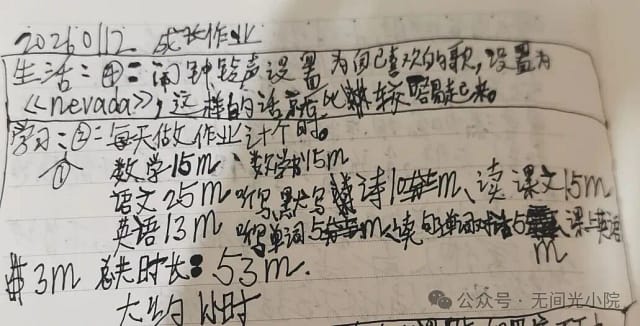 20260112 成长作业
生活:④:闹钟铃声设置为自己喜欢的歌,设置为
《nevada》,这样的话就比较容易起来。
学习:②:每天做作业计个时。
①
数学15m、数学书15m
语文25m 听写,默写 诗10m、读课文15m
英语13m 听写单词5m 读句单词对话5 课与英语
m
3m 总共时长:53m.
大约1小时
公众号·无间光小院